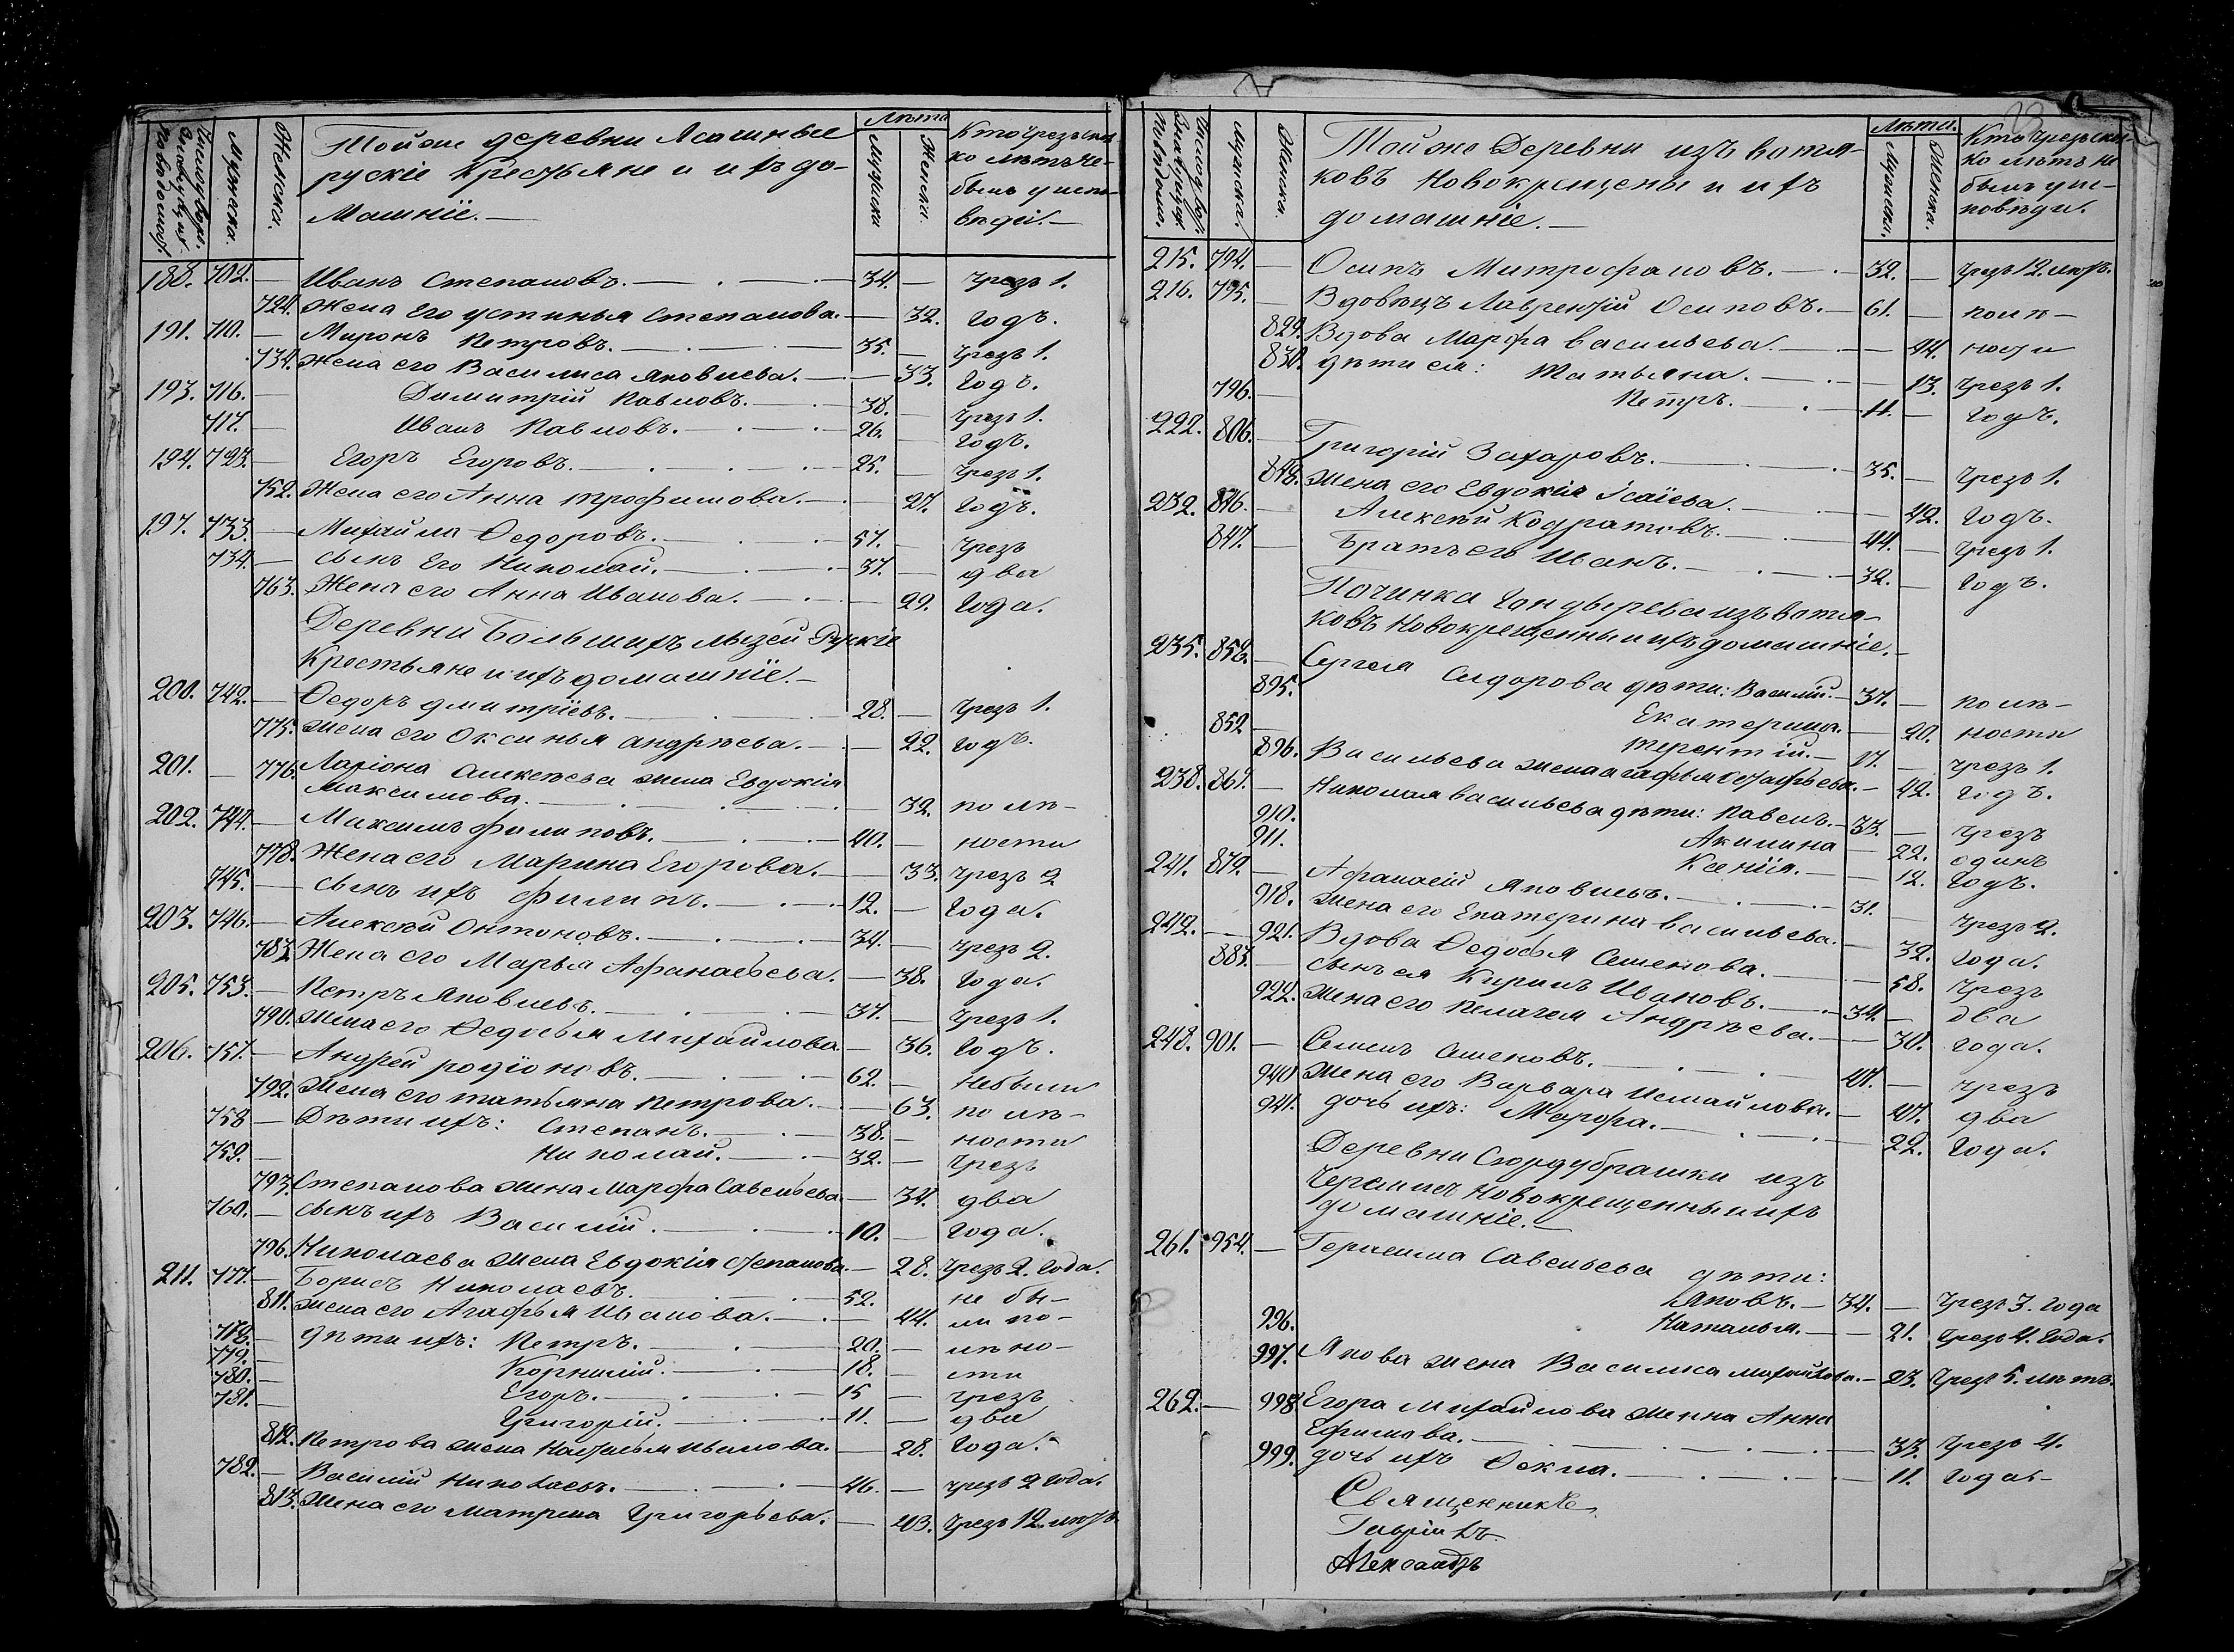 Тойже деревни Ясашные
руские крестьяне и ихъ до-
машніе.—
Лѣта
Мужески
Женски.
Кто чрезъ сколь-
ко лѣтъ не
былъ у испо-
вѣди.—
Мужеска.
Женска.
188. 702. — Иванъ Степановъ. — 34. — чрезъ 1.
724. Жена его устинья Степанова. — 32. годъ.
191. 710. — Миронъ Петровъ. — 35. — чрезъ 1.
734. Жена его Василиса Яковлева. — 33. годъ.
193. 716. — Димитрій Павловъ. — 38. — чрезъ 1.
717. — Иванъ Павловъ. — 26. — годъ.
194. 723. — Егоръ Егоровъ. — 25. — чрезъ 1.
752. Жена его Анна трофимова. — 27. годъ.
197. 733. — Михайла Ѳедоровъ. — 57. — чрезъ
734. — сынъ его Николай. — 37. — два
763. Жена его Анна Иванова. — 29. года.
Деревни Большихъ лызей Руские
Крестьяне и ихъ домашніе.—
200. 742. — Ѳедоръ дмитріевъ. — 28. — чрезъ 1.
775. Жена его Оксинья андрѣева. — 22. годъ.
201. — 776. Ларіона Алексѣева жена Евдокія
Максимова. — 32. по лѣ-
202. 744. — Максимъ филиповъ. — 40. — ности
778. Жена его Марина Егорова. — 33. чрезъ 2
745. — сынъ ихъ филипъ. — 12. — года.
203. 746. — Алексѣй Онтоновъ. — 34. — чрезъ 2.
783. Жена его Марья Афанасьева. — 38. года.
205. 753. — Петръ яковлевъ. — 37. — чрезъ 1.
790. Жена его Ѳедосья Михайлова — 36. годъ.
206. 757. — Андрей родіоновъ. — 62. — небыли
792. Жена его татьяна петрова. — 63. по лѣ-
758 — Дѣти ихъ: Степанъ. — 38. — ности
759. — Николай. — 32. — чрезъ
793. Степанова жена Марфа Савельева — 34. два
760. — сынъ ихъ Василій. — 10. — года.
796. Николаева жена Евдокія степанова. — 28. чрезъ 2. года.
211. 777. — Борисъ Николаевъ. — 52. — не бы-
811. жена его Агафья Иванова. — 44. ли по-
778. — дѣти ихъ: Петръ. — 20. — лѣно-
779. — Корнилій. — 18. — сти
780. — Егоръ. — 15 — чрезъ
781. — Григорій. — 11. — два
812. Петрова жена Наталья иванова. — 28. года.
782. — Василій Николаевъ. — 46. — чрезъ 2 года.
813. Жена его матрена Григорьева. — 43. чрезъ 12. лѣтъ.
Тойже Деревни изъ вотя-
ковъ Новокрещены и ихъ
домашніе.—
Лѣта.
Мужески.
Женска.
Кто чрезъ сколь-
ко лѣтъ не
былъ у ис-
повѣди.
Мужеска.
Женска.
215. 794. — Осипъ Митрофановъ. — 32. — чрезъ 12. лѣтъ.
216. 795. — Вдовецъ Лаврентій Осиповъ. — 61. — полѣ-
829. Вдова Марфа васильева. — 44. ности
830. дѣти ея: Татьяна. — 13. чрезъ 1.
796. — Петръ. — 11. — годъ.
222. 806. — Григорій Захаровъ. — 35. — чрезъ 1.
848. жена его Евдокія Ісаіева. — 42. годъ.
232. 846. — Алексѣй Кодратовъ. — 44. — чрезъ 1.
847. — братъ его Иванъ. — 32. — годъ.
Починка Гондырева изъ вотя-
ковъ Новокрещенные и ихъ домашніе.—
235. 858. — Сергея Сидорова дѣти: Василій. — 37. — по лѣ-
895. Екатерина. — 20. ности
852 — терентій. — 17. — чрезъ 1.
896. Васильева жена агафья Остафьева. — 42. годъ.
238. 861. — Николая васильева дѣти: Павелъ. — 33. — чрезъ
910. Акилина — 22. одинъ
911. Ксенія. — 12. годъ.
241. 879. — Афанасій яковлевъ. — 31. — чрезъ 2.
918. жена его Екатерина васильева. — 32. года.
242. — 921. Вдова Ѳедосья Семенова. — 58. чрезъ
883. — сынъ ея Кирилъ Ивановъ. — 34. — два
922. жена его пелагея Андрѣева. — 30. года.
248. 901. — Семенъ семеновъ. — 47. — чрезъ
940 жена его Варвара исмайлова. — 47. два
941. дочь ихъ: Марфа. — 22. года.
Деревни Сюрдубрашки изъ
Черемисъ новокрещенные и ихъ
домашніе.—
261. 954. — Герасима Савельева дѣти:
яковъ. — 34. — чрезъ 3. года
996. Наталья. — 21. чрезъ 4. года.
997. Якова жена Василиса михайлова. — 23. чрезъ 5. лѣтъ.
262. — 998. Егора Михайлова женна Анна
Ефимова. — 33. чрезъ 4.
999. дочь ихъ Ѳекла. — 11. года—
Священникъ
Гаврилъ
Александръ